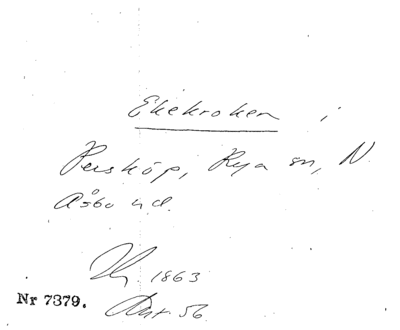 Ekekroken i
Persköp, Rya sn, N.
Åsbo hd.
Hg. 1863
Nr 7379.
Akt 56.